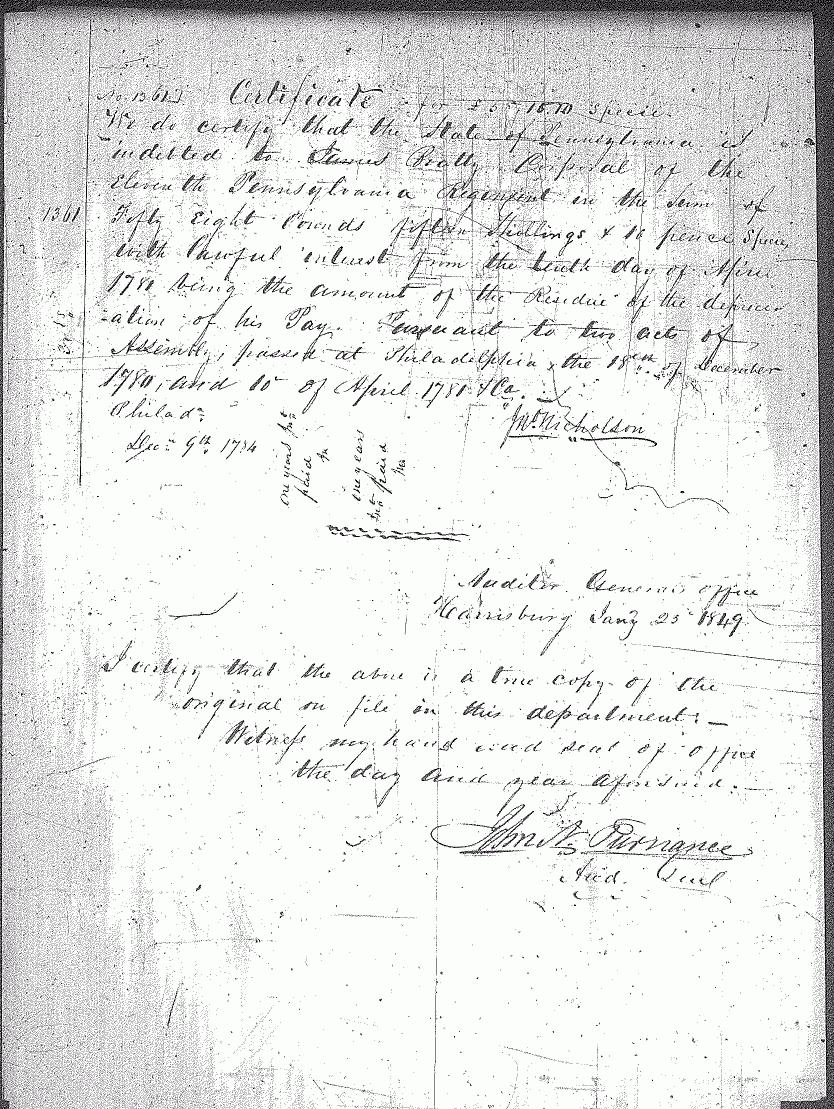 No. 1361 Certificate for £ 58 15 10 Specie.
We do certify that the State of Pennsylvania is
indebted to James Beatty Corporal of the
Eleventh Pennsylvania Regiment in the Sum of
1361
Fifty Eight Pounds fifteen Shillings & 10 pence Specie,
with lawful interest from the tenth day of April
1781 being the amount of the Residue of the depreci
-ation of his Pay. Pursuant to two acts of
Assembly, passed at Philadelphia, the 18th of December
1780, and 10 of April 1781 &Co.
Philad
Jno. Nicholson
Dec. 9th 1784
one years Int
paid
one years
Int paid
Auditor Generals office
Harrisburg Jany 25 1849
I certify that the above is a true copy of the
original on file in this department: —
Witness my hand and seal of office
the day and year aforesaid. —
John N. Purviance
Aud. Genl